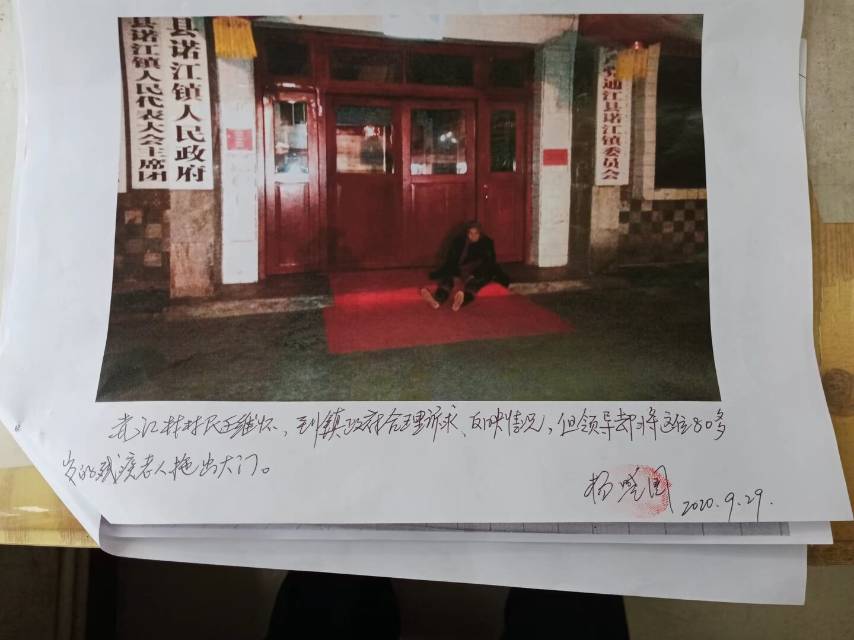 县诺江镇人民代表大会主席团
县诺江镇人民政府
通江县诺江镇委员会
村村民王维怀，到镇政府合理诉求、反映情况，但领导却将这位80多
岁的残疾老人拖出大门。
2020.9.29.